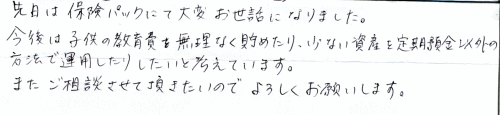 先日は保険パックにて大変お世話になりました。
今後は子供の教育費を無理なく貯めたり、少ない資産を定期預金以外の
方法で運用したりしたいと考えています。
またご相談させて頂きたいのでよろしくお願いします。